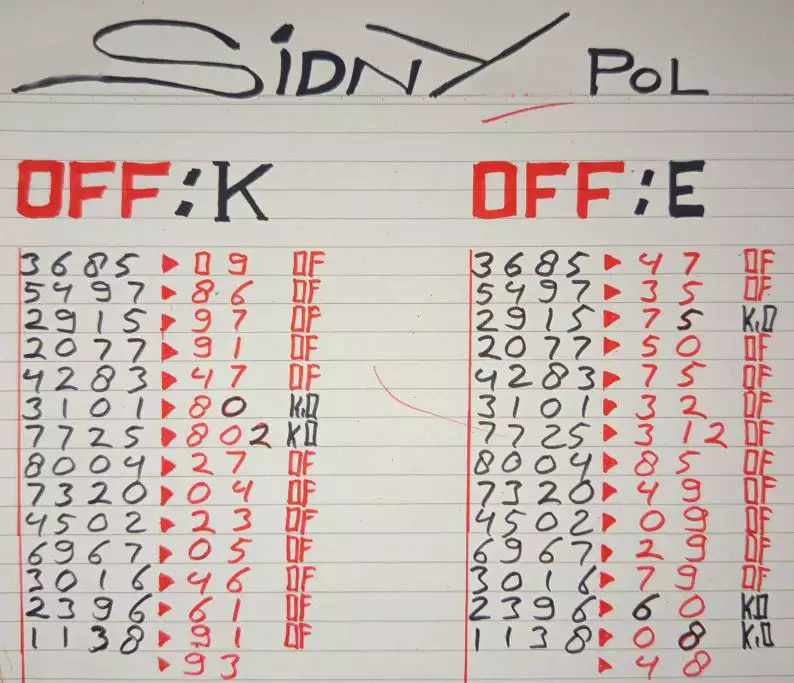 SiDNY POL
OFF:K
3685 ▶ 09 OF
5497 ▶ 86 OF
2915 ▶ 97 OF
2077 ▶ 91 OF
4283 ▶ 47 OF
3101 ▶ 80 K.O
7725 ▶ 802 KO
8004 ▶ 27 OF
7320 ▶ 04 OF
4502 ▶ 23 OF
6967 ▶ 05 OF
3016 ▶ 46 OF
2396 ▶ 61 OF
1138 ▶ 91 OF
▶ 93
OFF:E
3685 ▶ 47 OF
5497 ▶ 35 OF
2915 ▶ 75 K.O
2077 ▶ 50 OF
4283 ▶ 75 OF
3101 ▶ 32 OF
7725 ▶ 312 OF
8004 ▶ 85 OF
7320 ▶ 49 OF
4502 ▶ 09 OF
6967 ▶ 29 OF
3016 ▶ 79 OF
2396 ▶ 60 KO
1138 ▶ 08 K.O
▶ 48